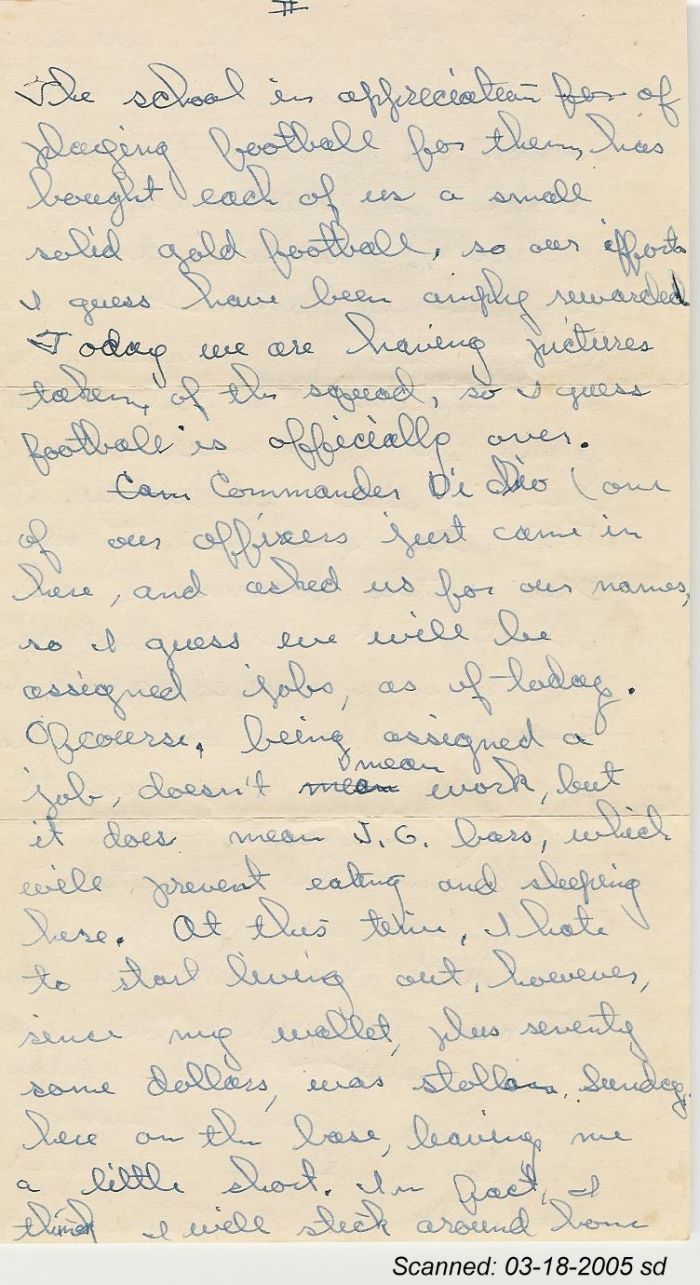 II
The school in appreciation for of
playing football for them, has
bought each of us a small
solid gold football, so our efforts
I guess have been amply rewarded
Today we are having pictures
taken, of the squad, so I guess
football is officially over.
Cam Commander Di Dio (one
of our offixers just came in
here, and asked us for our names,
so I guess we will be
assigned jobs, as of today.
Ofcourse, being assigned a
mean
job, doesn't mean work, but
it does mean J.G. bars, which
will prevent eating and sleeping
here. At this time, I hate
to start living out, however,
sence my wallet, plus seventy
some dollars, was stollen, Sunday,
here on the base, leaving me
a little short. In fact, I
think I will stick around home
Scanned: 03-18-2005 sd